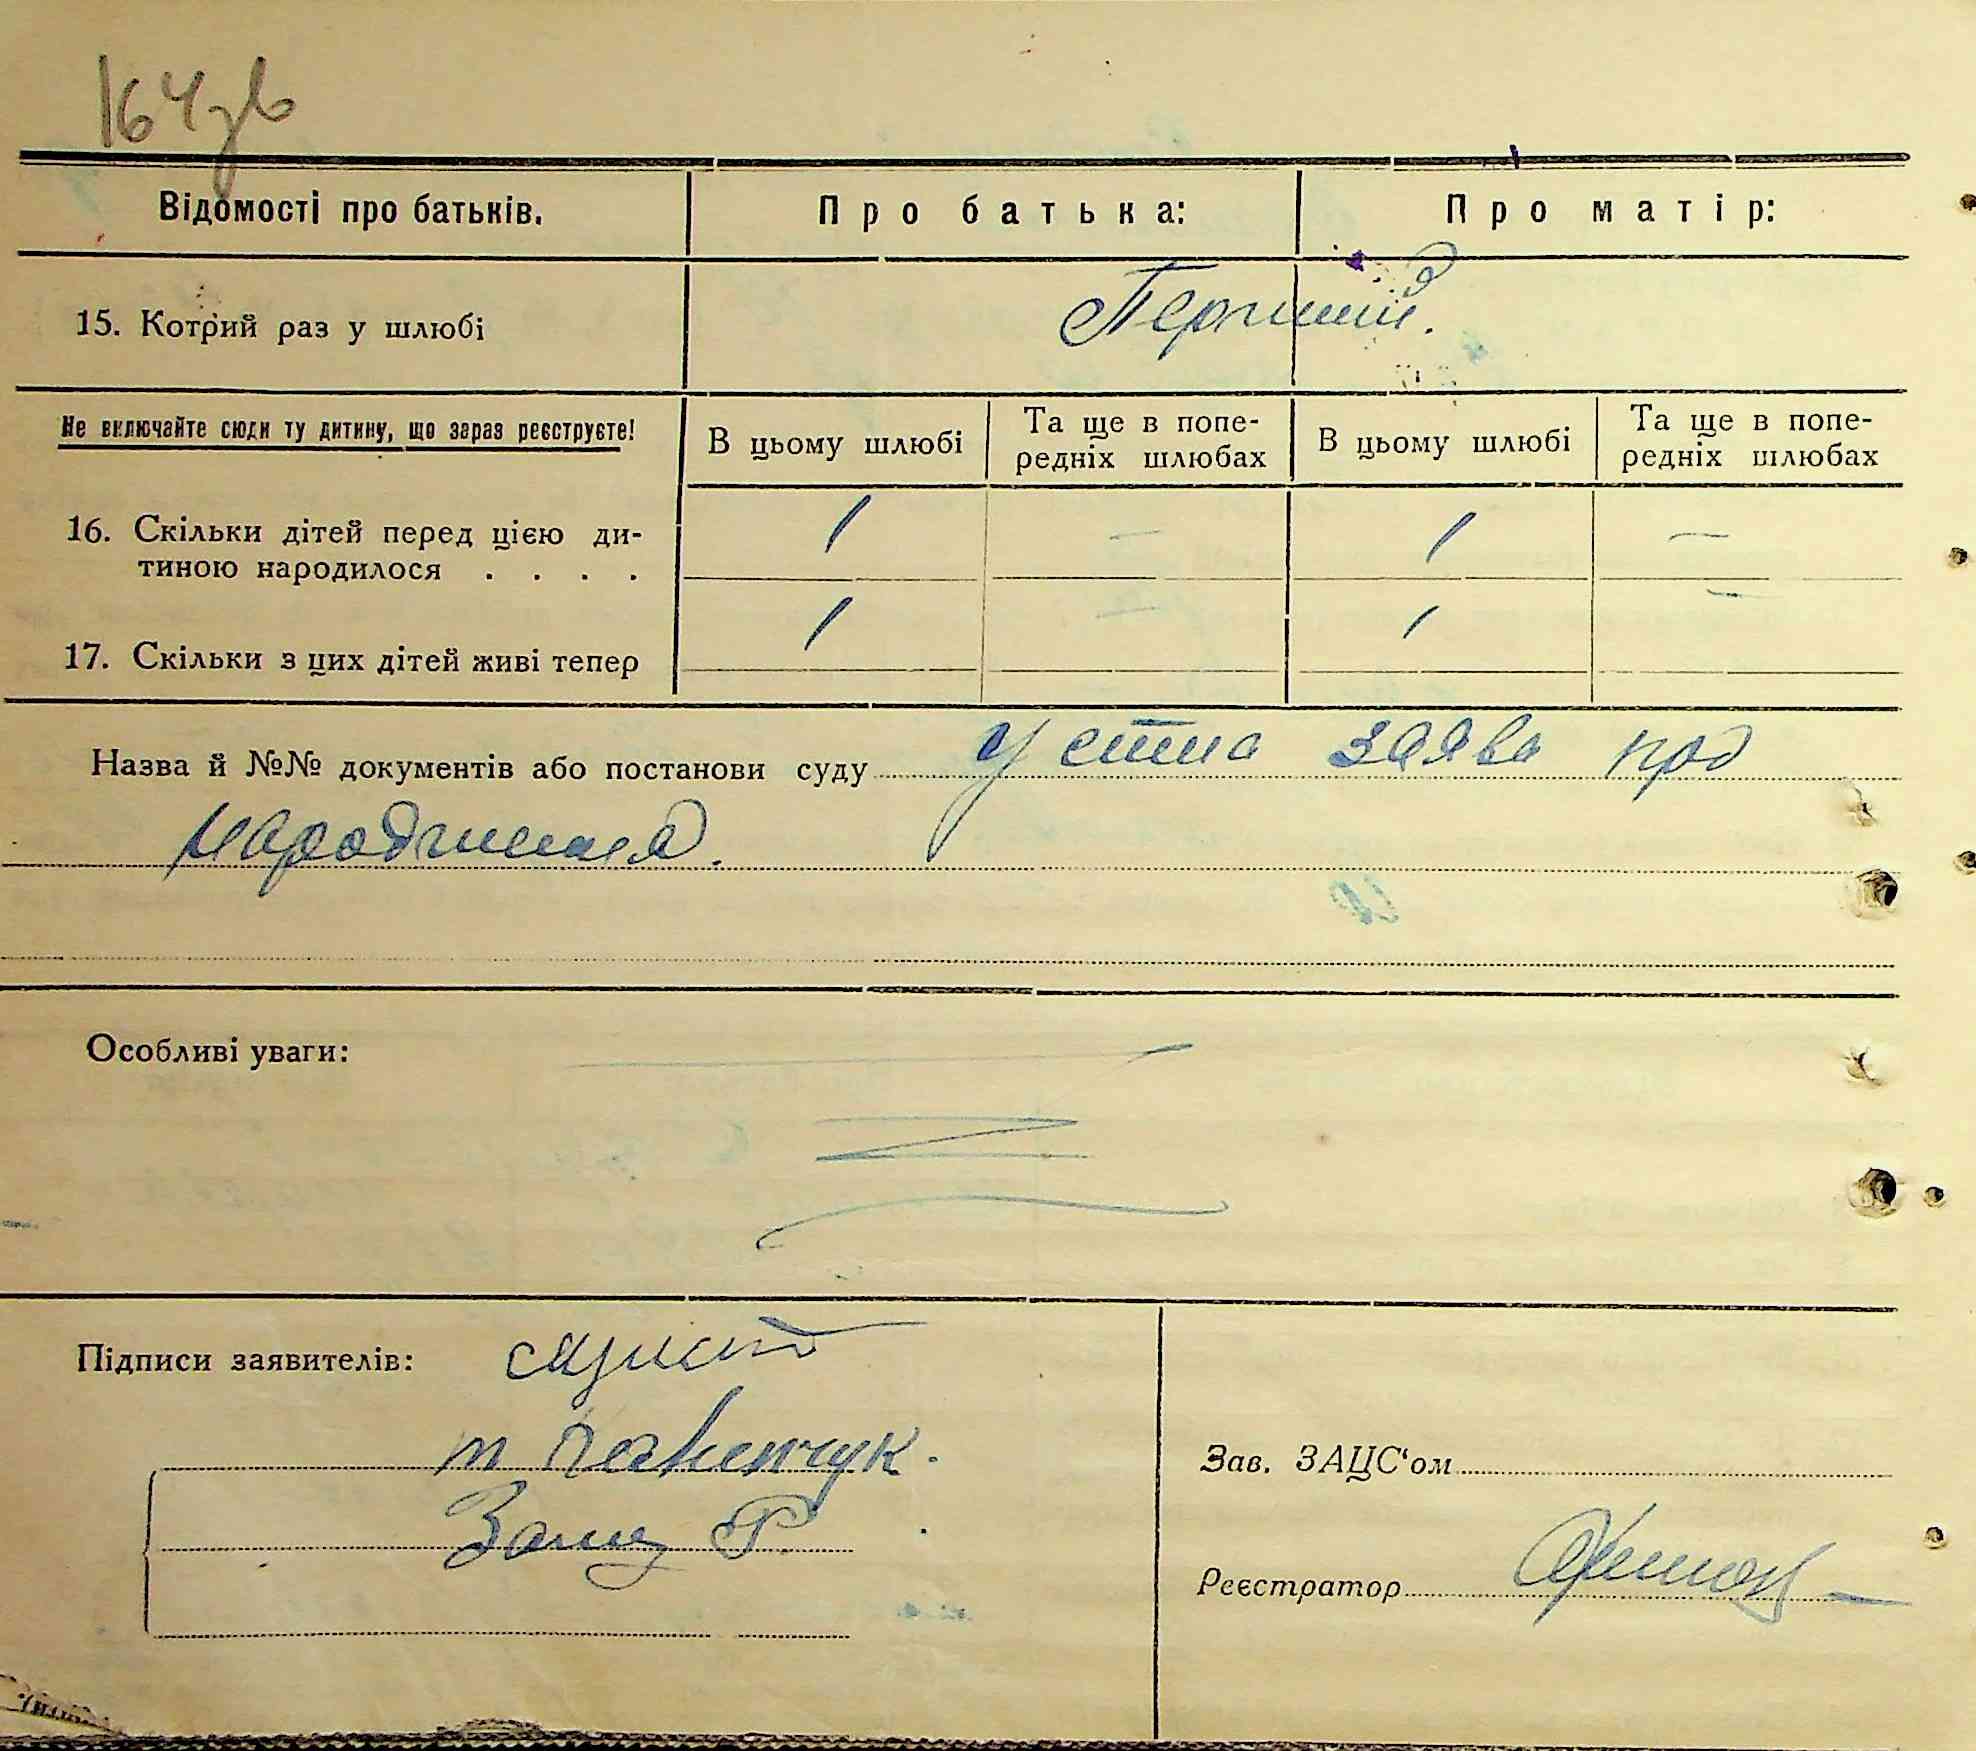 164зв
Відомості про батьків.
Про батька:
Про матір:
15. Котрий раз у шлюбі
Перший.
Не включайте сюди ту дитину, що зараз реєструєте!
В цьому шлюбі
Та ще в попе-
редніх шлюбах
В цьому шлюбі
Та ще в попе-
редніх шлюбах
16. Скільки дітей перед цією ди-
тиною народилося . . . .
1 — 1 —
17. Скільки з цих дітей живі тепер
1 — 1 —
Назва й №№ документів або постанови суду устна заява про
народження.
Особливі уваги:
Підписи заявителів:
Зав. ЗАЦС'ом
Реєстратор